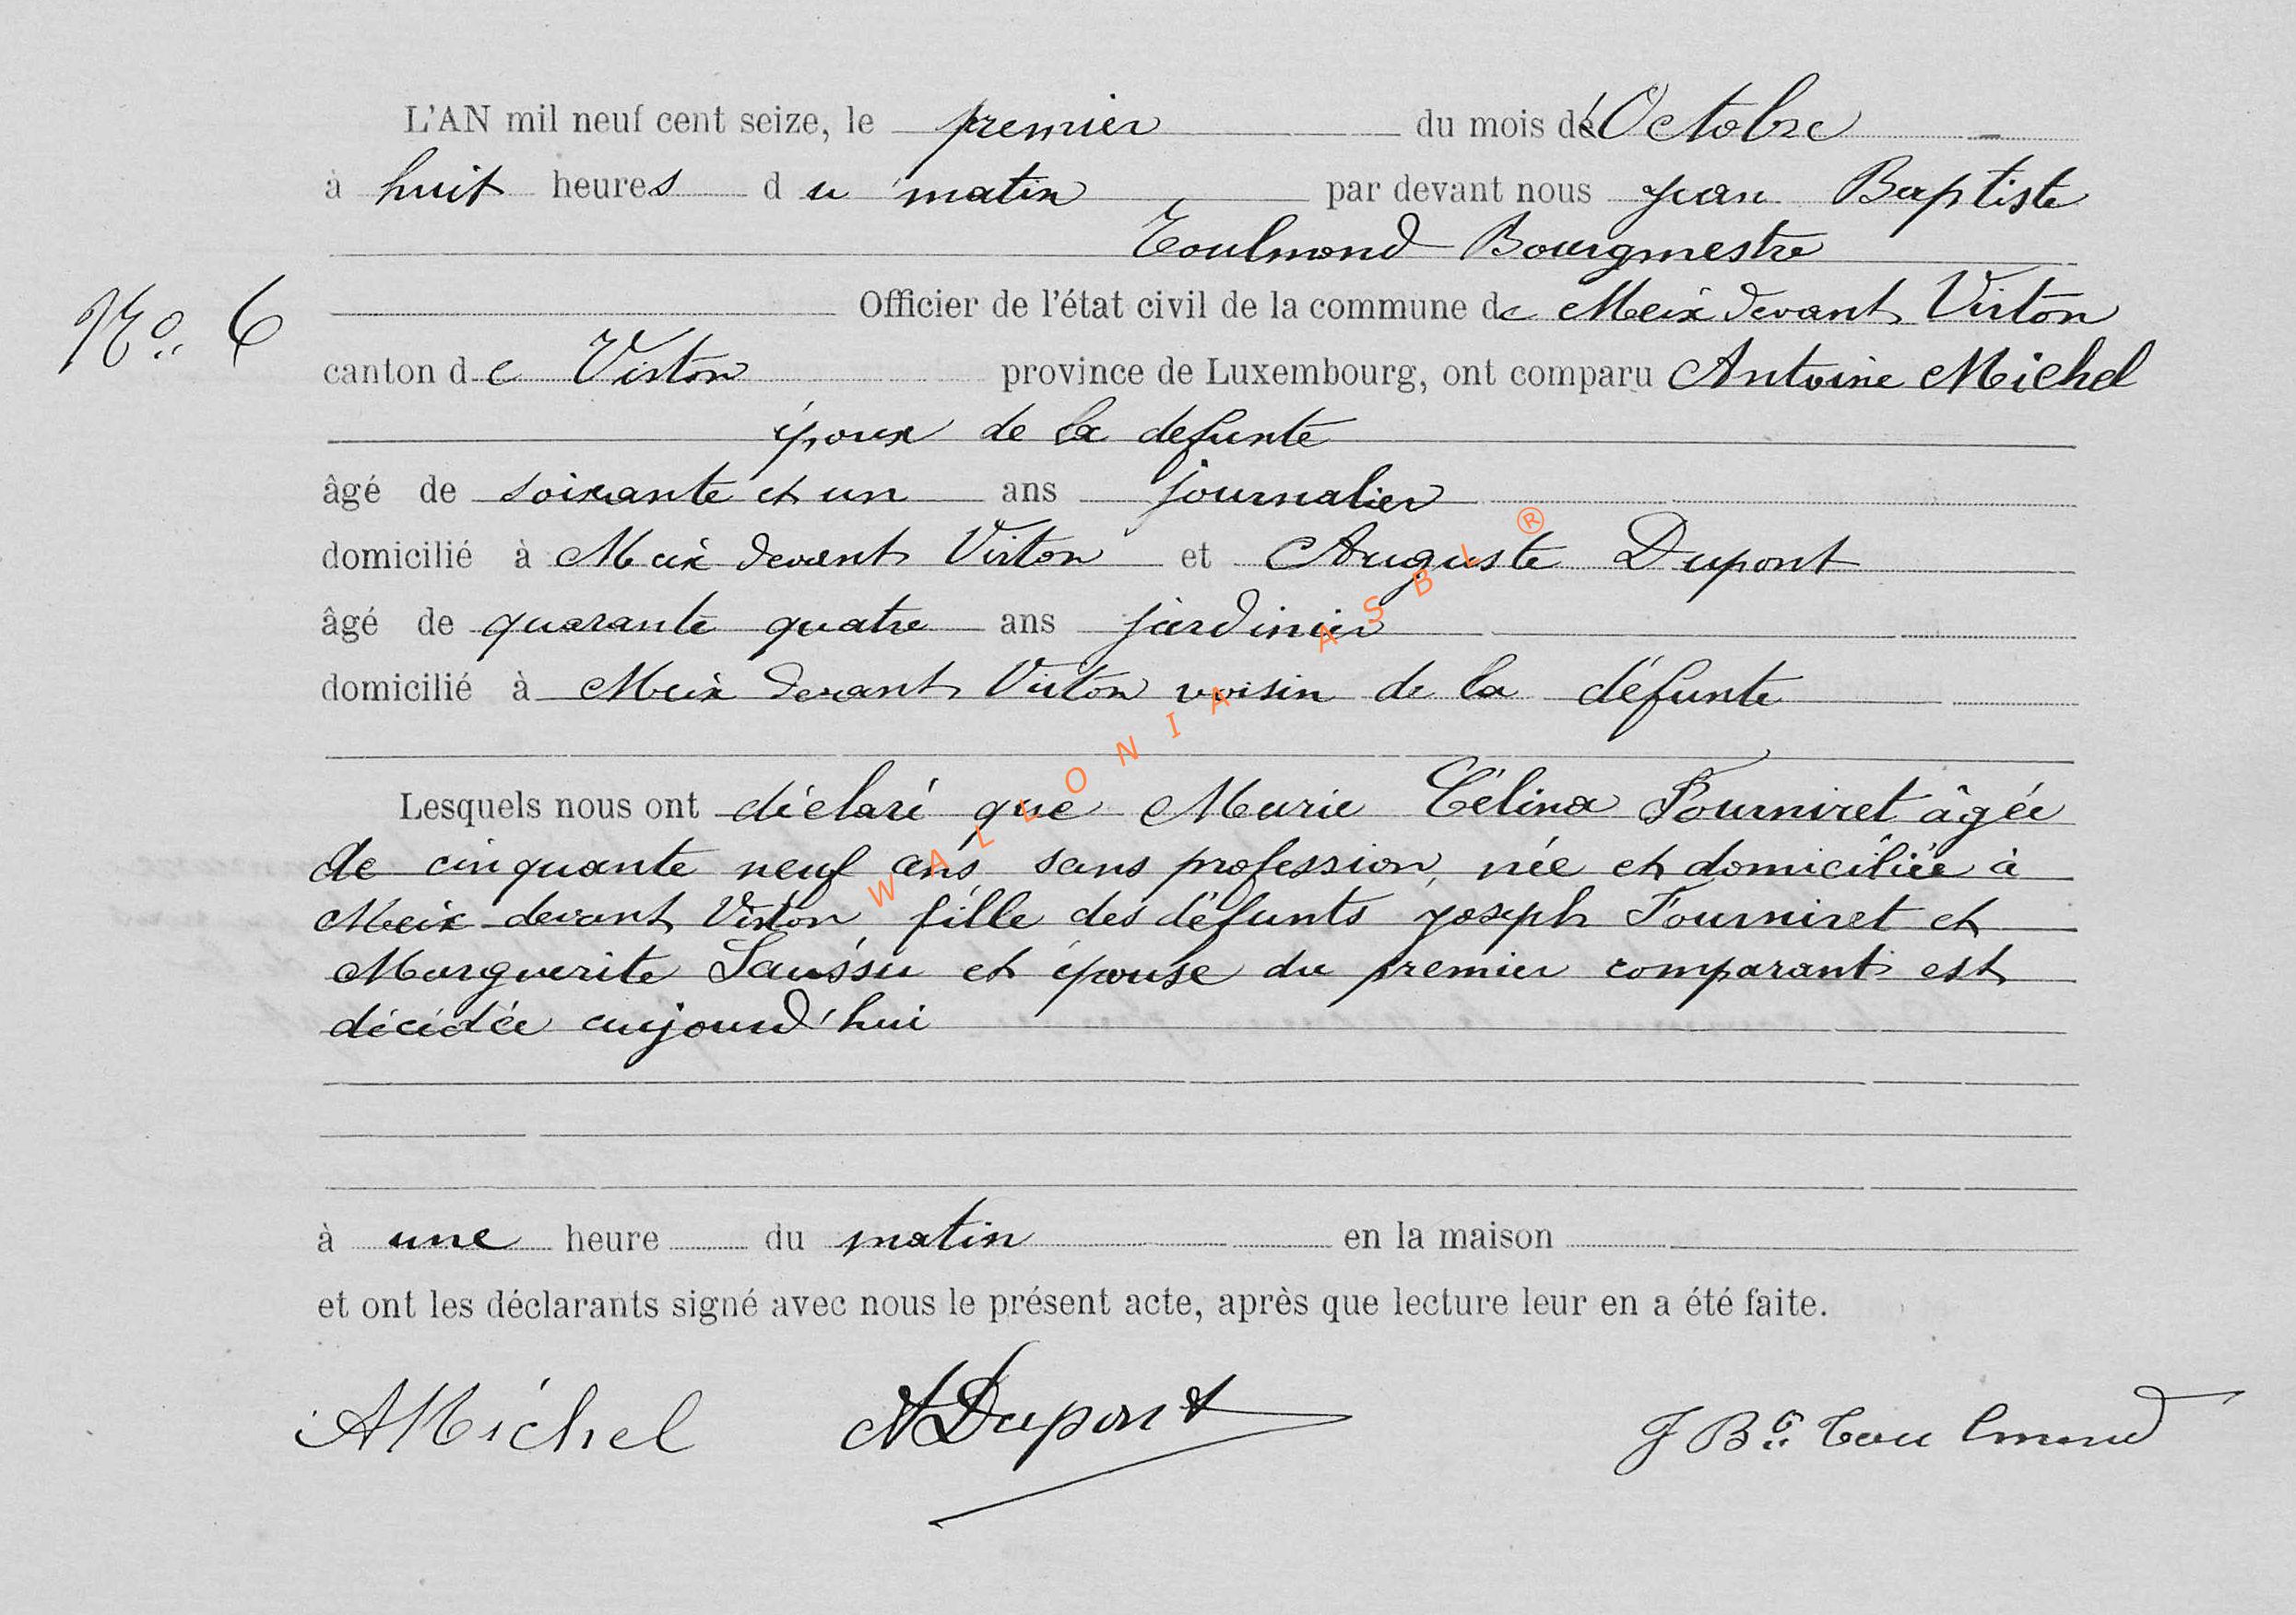 L'AN mil neuf cent seize, le premier du mois d'Octobre
à huit heures du matin par devant nous Jean Baptiste
Toulmond Bourgmestre
No. 6
Officier de l'état civil de la commune de Meix devant Virton
canton de Virton province de Luxembourg, ont comparu Antoine Michel
époux de la defunte
âgé de soixante et un ans journalier
domicilié à Meix devant Virton et Auguste Dupont
âgé de quarante quatre ans jardinier
domicilié à Meix devant Virton voisin de la défunte
Lesquels nous ont déclaré que Marie Célina Fourniret âgée
de cinquante neuf ans, sans profession, née et domiciliée à
Meix devant Virton, fille des défunts Joseph Fourniret et
Marguerite et épouse du premier comparant est
décédée aujourd'hui
à une heure du matin en la maison
et ont les déclarants signé avec nous le présent acte, après que lecture leur en a été faite.
AMichel ADupont J Bte Toulmond
WALLONIA ASBL ®